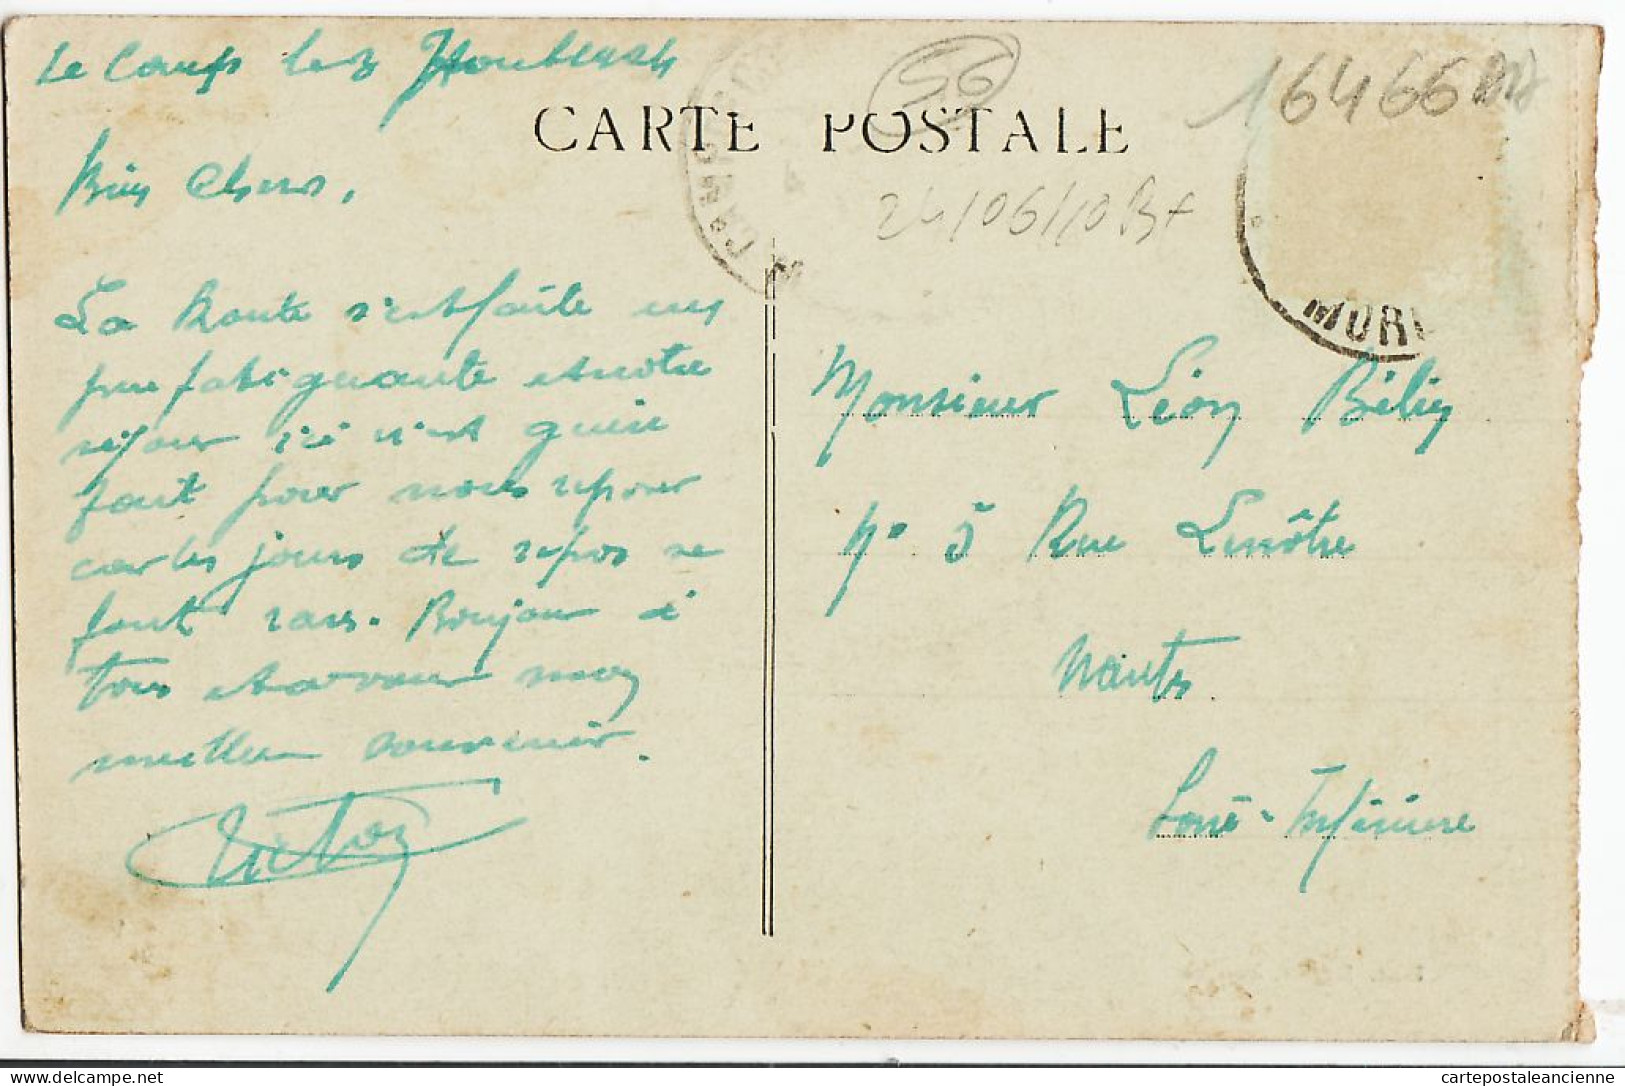 Le Camp le 3
Bien Chers,
La Route s'est faite un
peu fatiguante et notre
séjour ici n'est guère
fait pour nous reposer
car les jours de repos se
font rares. Bonjour à
tous et recevez mon
meilleur souvenir.
Victor
CARTE POSTALE
56
16466
24/06/10
MORB
Monsieur Léon Bélis
N° 5 Rue Lenôtre
Nantes
Loire-Inférieure
cartepostaleancienne
delcampe.net